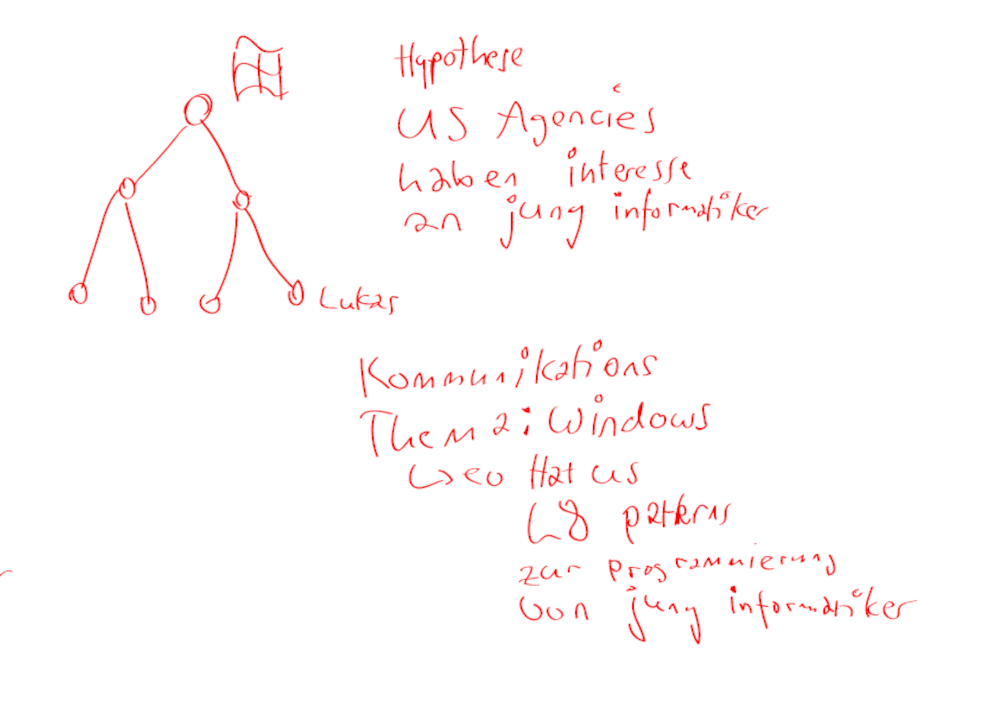 Hypothese
US Agencies
haben interesse
an jung informatiker
Lukas
Kommunikations
Thema: Windows
Hat US
patterns
zur Programmierung
von jung informatiker